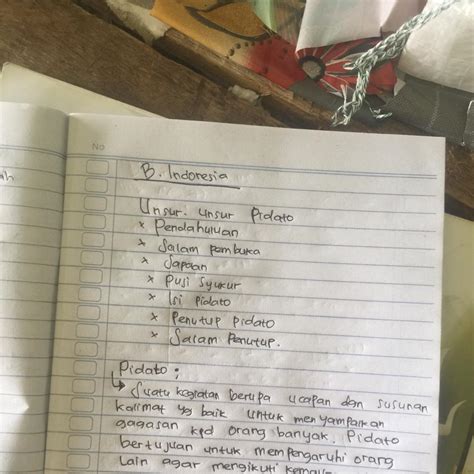 ah
No
B. Indonesia
Unsur-unsur Pidato
x Pendahuluan
x Salam pembuka
x Sapaan
x Puji Syukur
x Isi pidato
x Penutup pidato
x Salam Penutup.
Pidato :
↳ Suatu kegiatan berupa ucapan dgn susunan
kalimat yg baik untuk menyampaikan
gagasan kpd orang banyak. Pidato
bertujuan untuk mempengaruhi orang
lain agar mengikuti